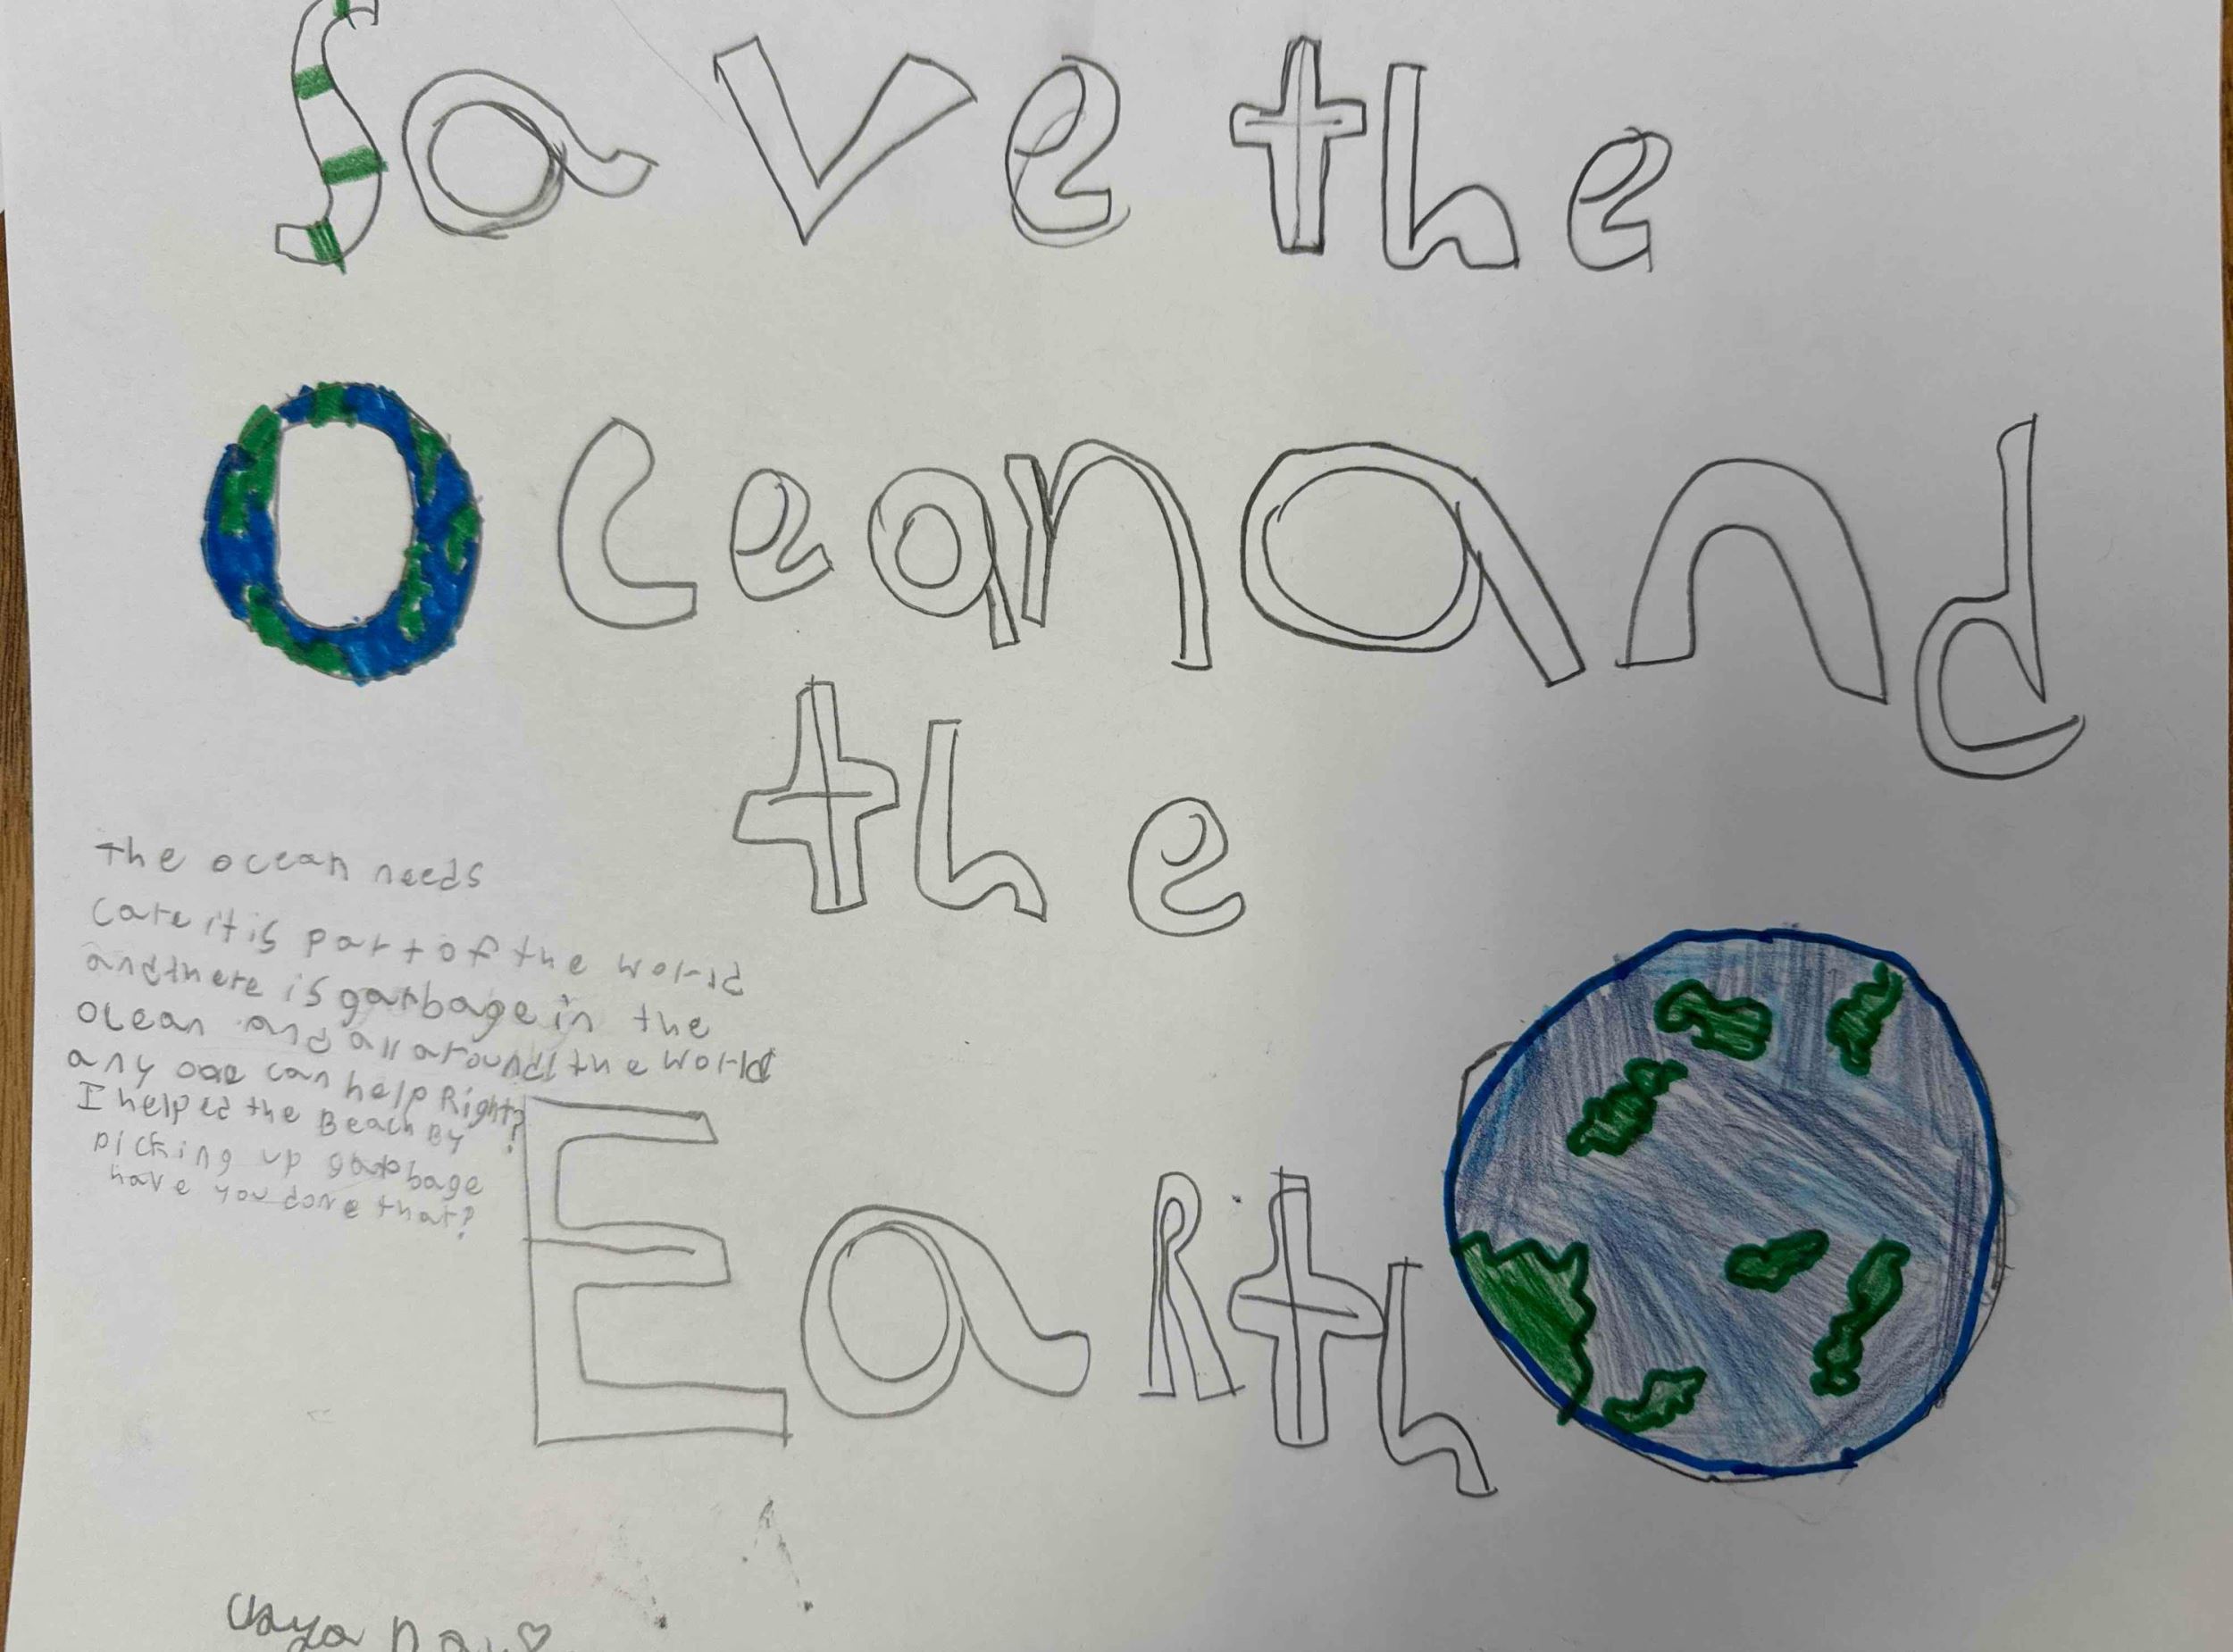 Save the
Ocean and
the
The ocean needs
care it is part of the world
and there is garbage in the
ocean and all around the world
any one can help Right?
I helped the Beach By
picking up garbage
have you done that?
EaRth